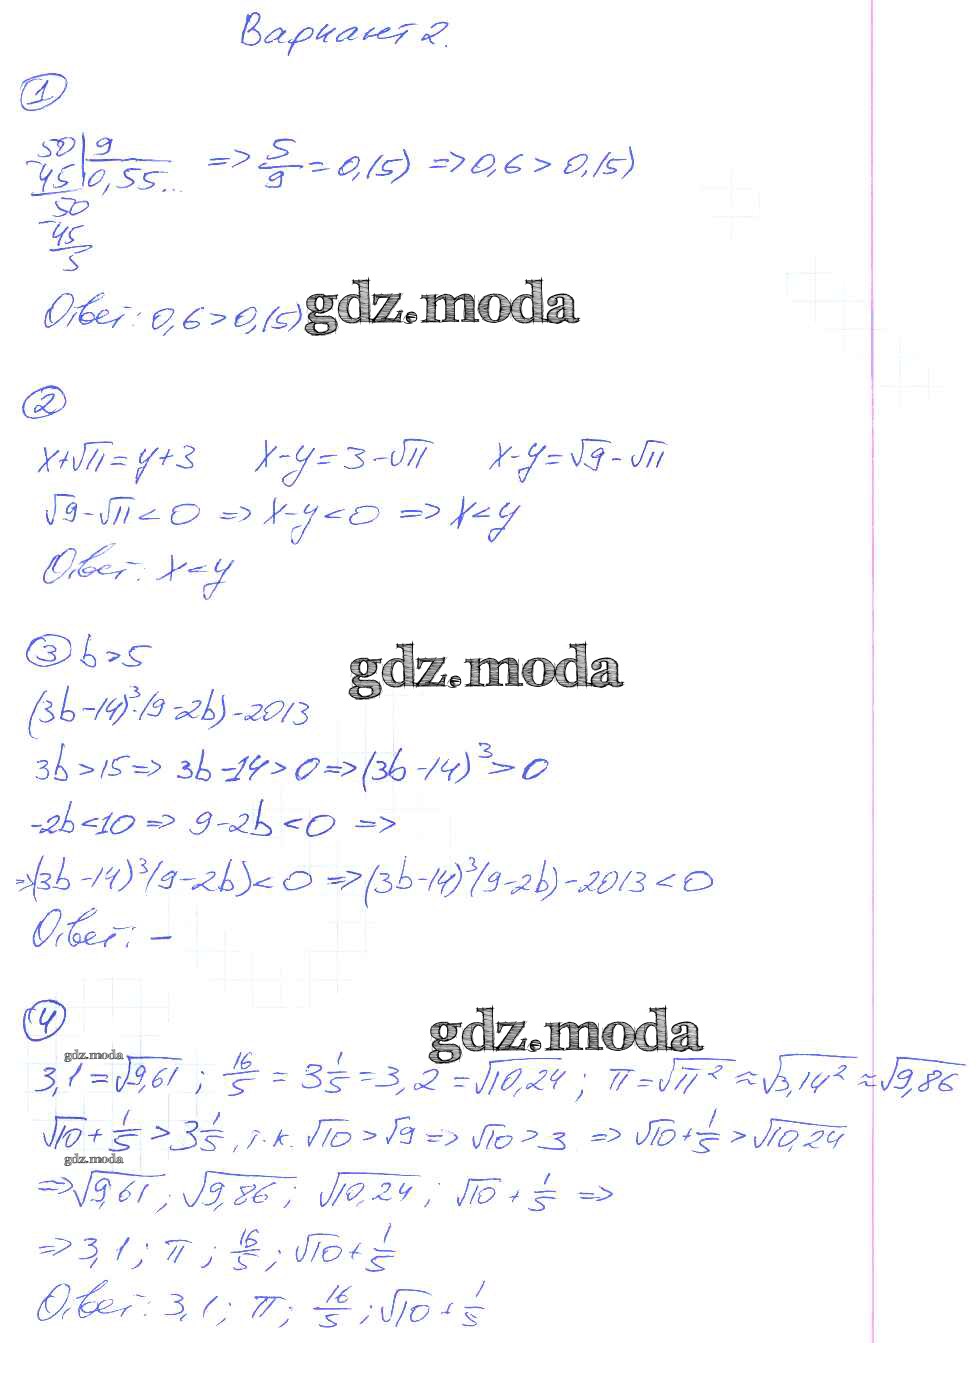 Вариант 2.
1
50 | 9
- 45 | 0,55... => 5/9 = 0,(5) => 0,6 > 0,(5)
50
- 45
5
Ответ: 0,6 > 0,(5)
gdz.moda
2
x+√11 = y+3 x-y = 3-√11 x-y = √9-√11
√9-√11 < 0 => x-y < 0 => x < y
Ответ: x < y
3 b > 5
gdz.moda
(3b-14)³·(9-2b)-2013
3b > 15 => 3b-14 > 0 => (3b-14)³ > 0
-2b < 10 => 9-2b < 0 =>
=> (3b-14)³(9-2b) < 0 => (3b-14)³(9-2b)-2013 < 0
Ответ: –
4
gdz.moda
gdz.moda
3,1 = √9,61 ; 16/5 = 3 1/5 = 3,2 = √10,24 ; π = √π² ≈ √3,14² ≈ √9,86
√10 + 1/5 > 3 1/5, т.к. √10 > √9 => √10 > 3 => √10 + 1/5 > √10,24
gdz.moda
=> √9,61 ; √9,86 ; √10,24 ; √10 + 1/5 =>
=> 3,1 ; π ; 16/5 ; √10 + 1/5
Ответ: 3,1 ; π ; 16/5 ; √10 + 1/5